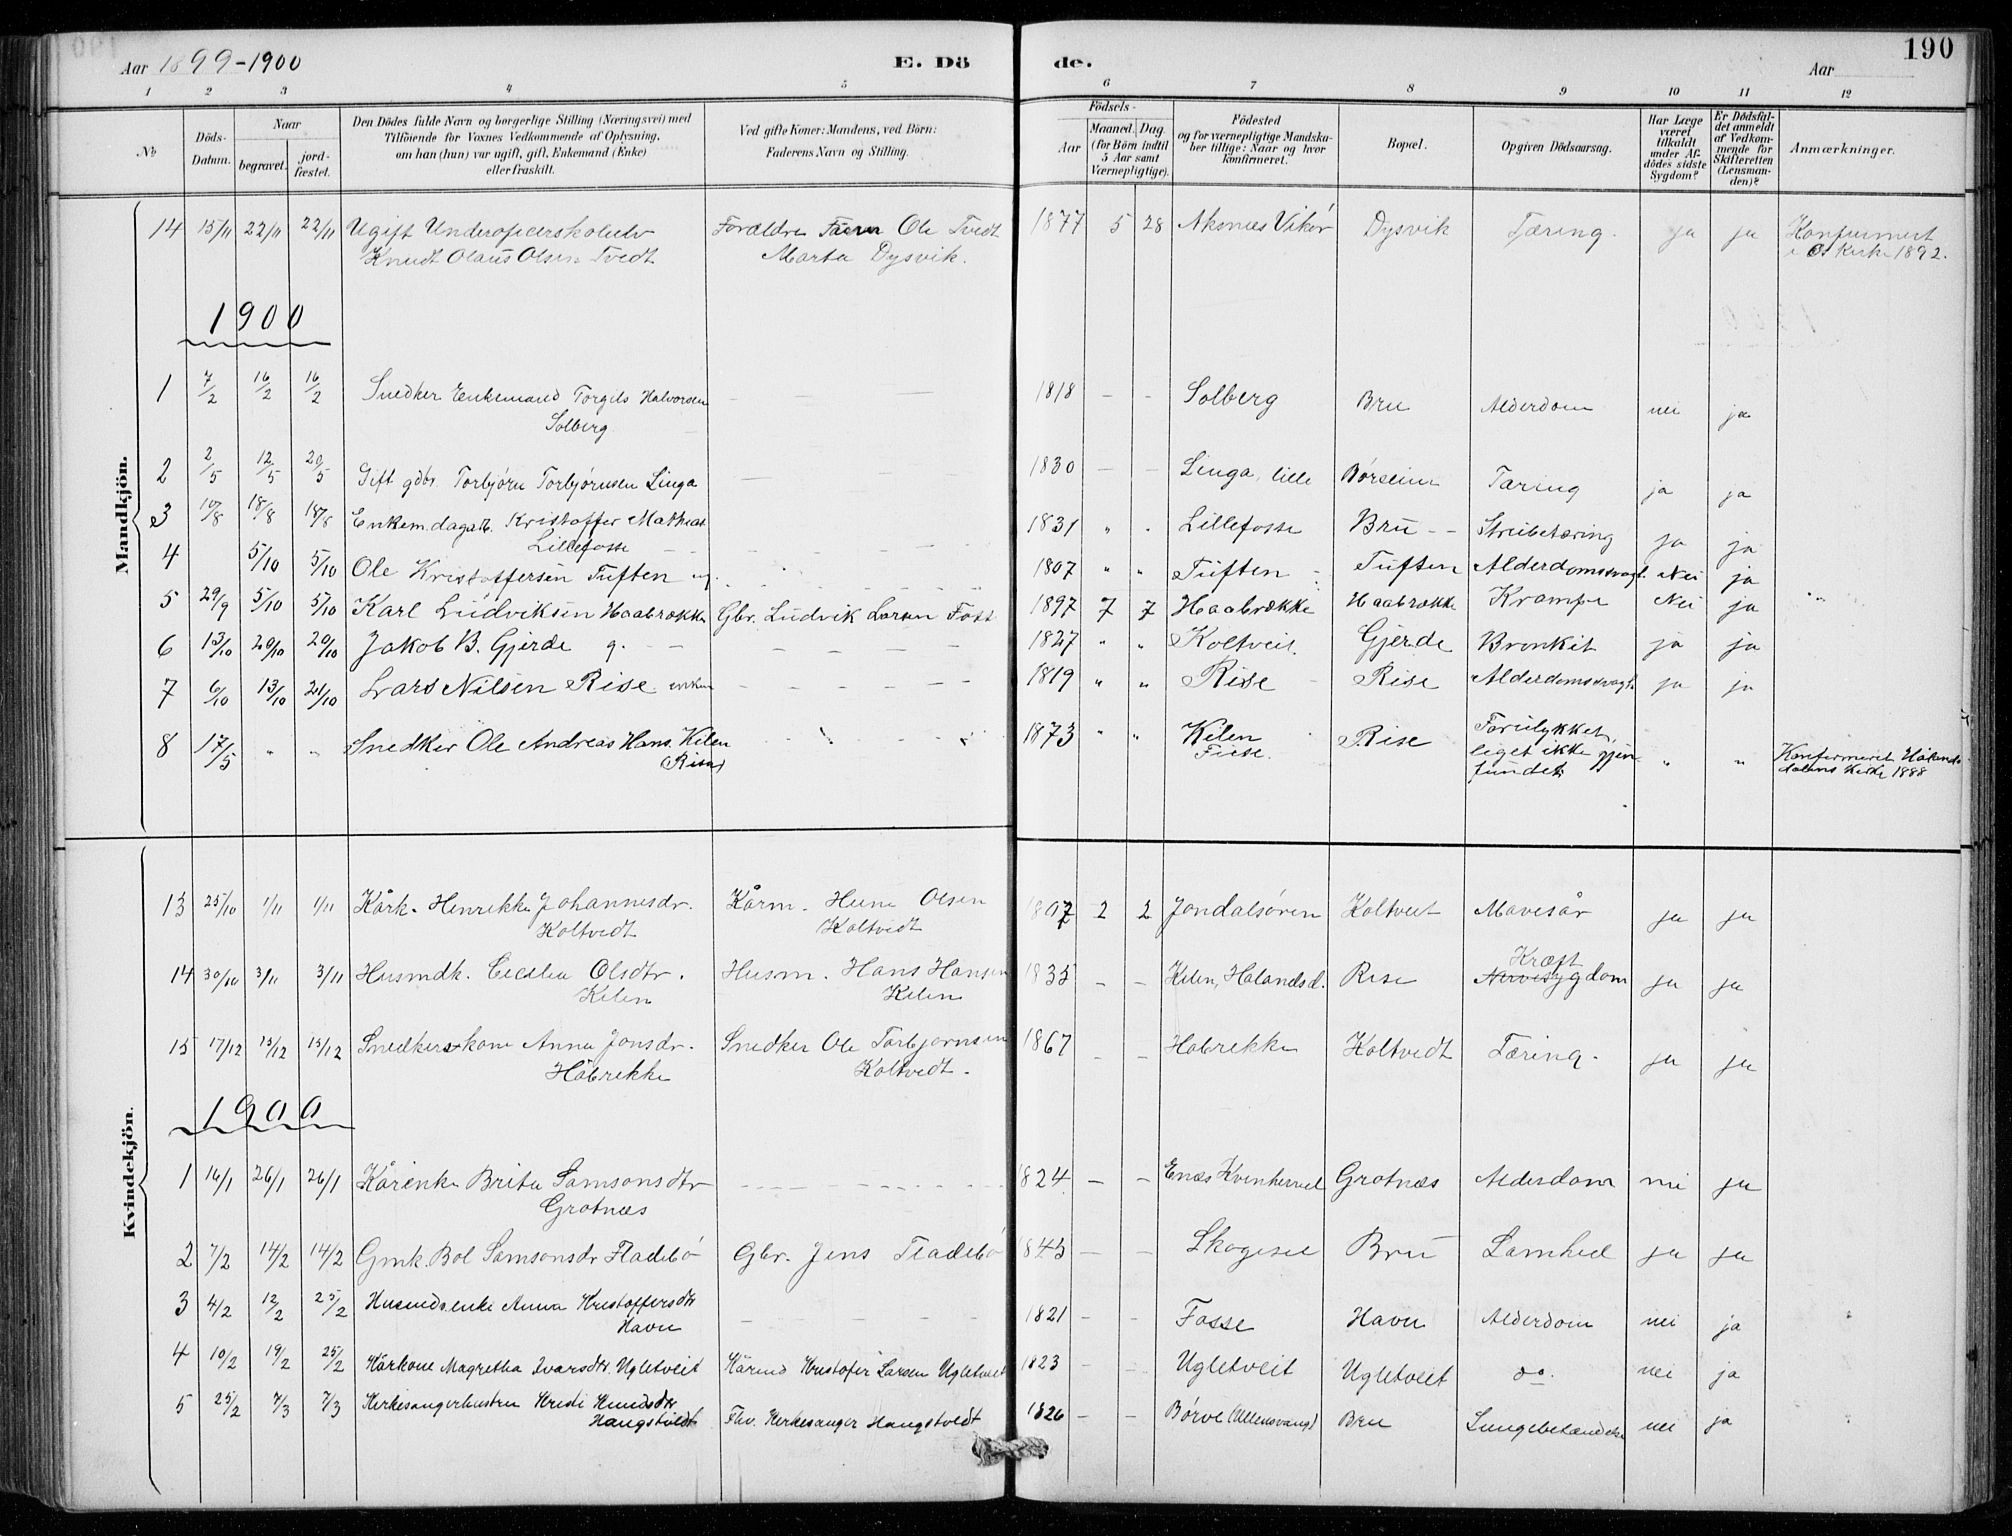 190
Aar 1899-1900 E. Dö de. Aar
1 2 3 4 5 6 7 8 9 10 11 12
No
Döds-Datum.
Naar begravet. jordfæstet.
Den Dödes fulde Navn og borgerlige Stilling (Næringsvei) med
Tilföiende for Voxnes Vedkommende af Oplysning,
om han (hun) var ugift, gift, Enkemand (Enke)
eller fraskilt.
Ved gifte Koner: Mandens, ved Börn:
Faderens Navn og Stilling.
Födsels-
Aar Maaned. Dag.
(for Börn indtil
5 Aar samt
Værnepligtige).
Födested
og for værnepligtige Mandskaber tillige: Naar og hvor
Konfirmeret.
Bopæl.
Opgiven Dödsaarsag.
Har Læge
været
tilkaldt
under Afdödes sidste
Sygdom?
Er Dödsfaldet anmeldt
af Vedkommende for
Skifteretten
(Lensmanden)?
Anmærkninger.
Mandkjön.
14 15/11 22/11 22/11 Ugift Underoficerskoleelev Forældre Ole Tvedt 1877 5 28 Aksnæs Vikör Dysvik Tæring. ja ja Konfirmert
Knudt Olaus Olsen Tvedt Marta Dysvik. i Kirke 1892.
1900
1 7/2 16/2 16/2 Snedker Enkemand Torgils Halvorsen 1818 - - Solberg Bru Alderdom nei ja
Solberg
2 2/5 12/5 20/5 Gift gdbr. Torbjørn Torbjørnsen Linga 1830 - - Linga, lille Børseim Tæring ja ja
3 10/8 18/8 18/8 Enkem. dagarb. Kristoffer Mathias. 1831 " . Lillefosse Bru Strubetæring ja ja
Lillefosse
4 5/10 5/10 Ole Kristoffersen Tuften ug. 1807 " " Tuften Tuften Alderdomssvagh. Nei ja
5 29/9 5/10 5/10 Karl Ludviksen Haabrække Gbr. Ludvik Larsen Foss 1897 7 7 Haabrække Haabrække Krampe Nei ja "
6 13/10 20/10 20/10 Jakob B. Gjerde g. 1827 " " Koltveit Gjerde Bronkit ja ja
7 6/10 13/10 21/10 Lars Nilsen Rise enkem 1819 " " Rise Rise Alderdomssvagh. ja ja
8 17/5 " " Snedker Ole Andreas Hans. Kilen 1873 " " Kilen Rise Forulykket,
(Rise) Fiese. liget ikke gjen- " " Konfirmeret Hålands-
fundet. dalens Kirke 1888
Kvindekjön.
13 25/10 1/11 1/11 Kårk. Henrikke Johannesdr. Kårm. Olsen 2 2 Jondalsøren Koltveit Mavesår ja ja
Koltvedt Koltvidt
14 30/10 3/11 3/11 Husmdk. Cecilia Olsdtr. Husm. Hans Hansen 1835 - - Kilen, Holandsd. Rise Kræft ja ja
Kilen Kilen Nervesygdom
15 17/12 13/12 13/12 Snedkerskone Anna Jonsdr. Snedker Ole Torbjørnsen 1867 - - Habrekke Koltvedt Tæring. ja ja
Håbrekke Koltvedt.
1900
1 16/1 26/1 26/1 Kårenke Brita Samsonsdtr 1824 - - Enæs Kvinherred Grotnæs Alderdom nei ja
Grotnæs
2 7/2 14/2 14/2 Gmk. Bol Samsonsdr Fladebö Gbr. Jens Fladebö 1843 - - Skogseie Bru Lamhed ja ja
3 4/2 12/2 25/2 Husmdsenke Anna Kristoffersdtr 1821 - - Fosse Havn Alderdom nei ja
Havn
4 10/2 19/2 25/2 Kårkone Magretha Ivarsdtr. Ugletveit Kårmd Kristofer Larsen Ugletveit 1823 - - Ugletveit Ugletveit do. nei ja
5 25/2 7/3 7/3 Kirkesangerhustru Kristi Knudsdtr 1826 - - Børve (Ullensvang) Bru Lungebetændelse nei ja
Haugstvedt Fhv. Kirkesanger Haugstvedt